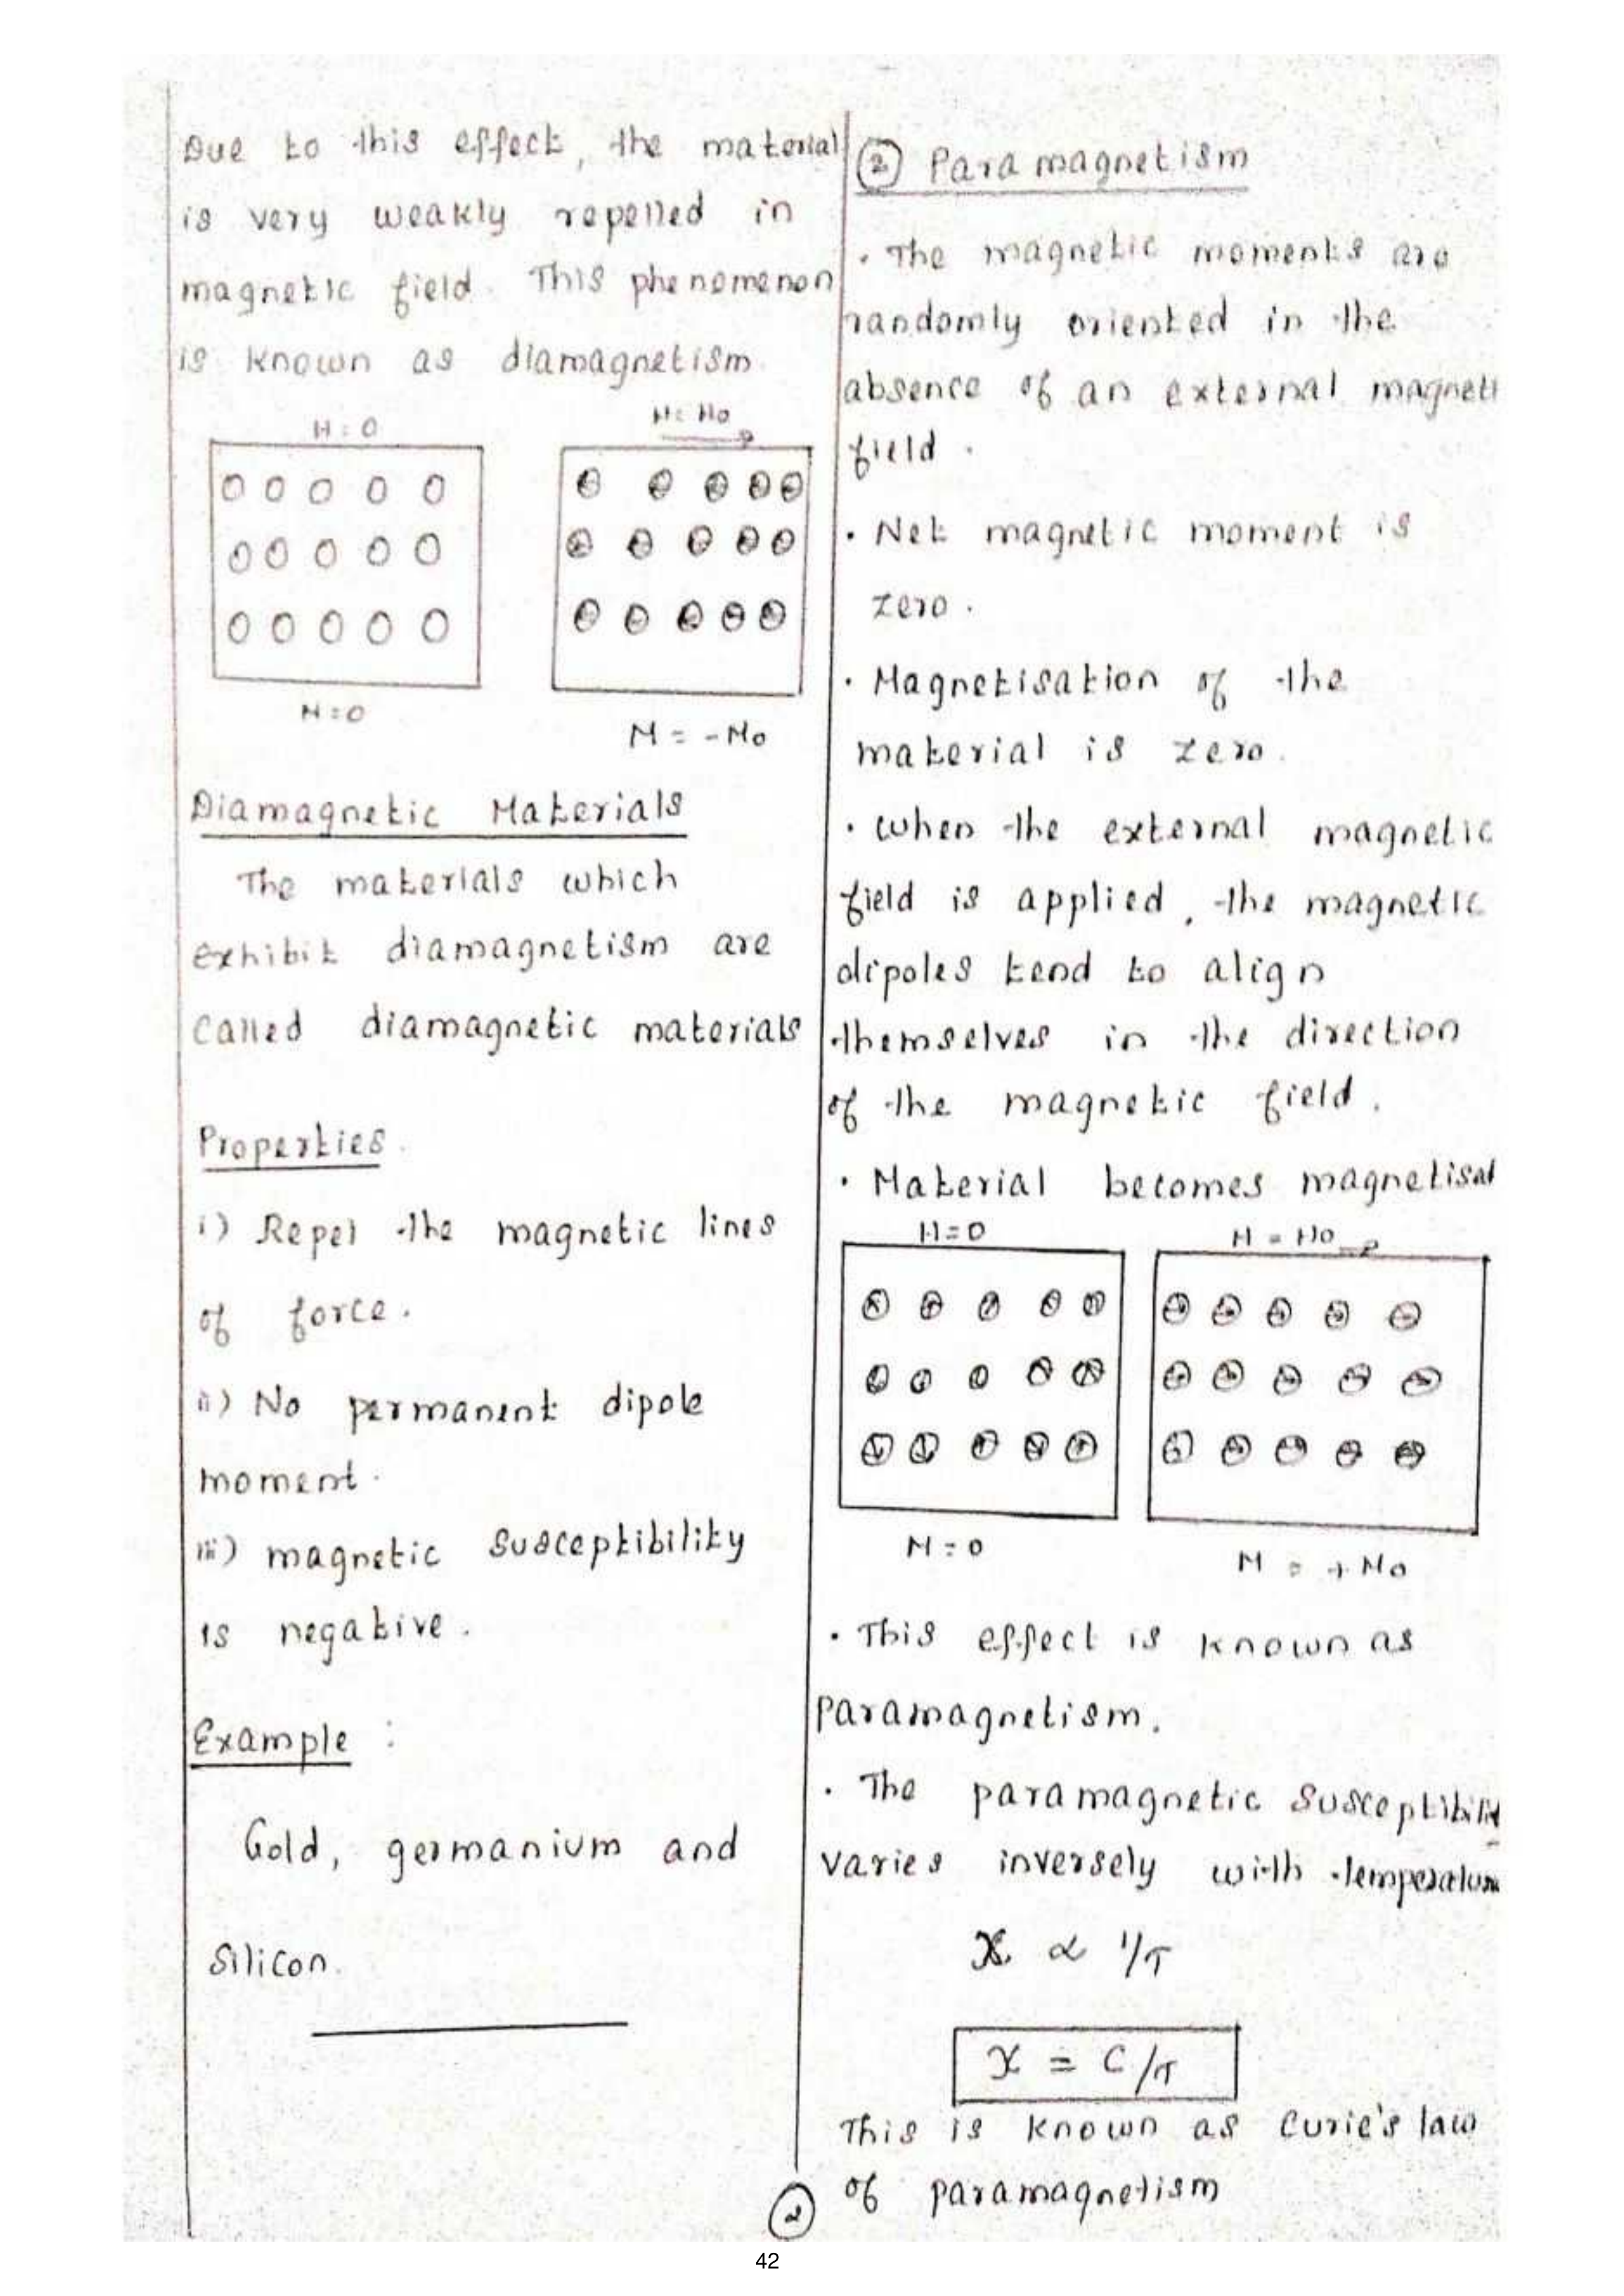 Due to this effect, the material
is very weakly repelled in
magnetic field. This phenomenon
is known as diamagnetism.
H = 0
H = H0
M = 0
M = -M0
Diamagnetic Materials
The materials which
exhibit diamagnetism are
called diamagnetic materials
Properties.
i) Repel the magnetic lines
of force.
ii) No permanent dipole
moment.
iii) magnetic susceptibility
is negative.
Example :
Gold, germanium and
Silicon.
② Paramagnetism
• The magnetic moments are
randomly oriented in the
absence of an external magneti
field.
• Net magnetic moment is
zero.
• Magnetisation of the
material is zero.
• When the external magnetic
field is applied, the magnetic
dipoles tend to align
themselves in the direction
of the magnetic field.
• Material becomes magnetised
H = 0
H = H0
M = 0
M = + M0
• This effect is known as
paramagnetism.
• The paramagnetic susceptibility
varies inversely with temperature
χ ∝ 1/T
χ = C/T
This is known as Curie's law
of paramagnetism
②
42